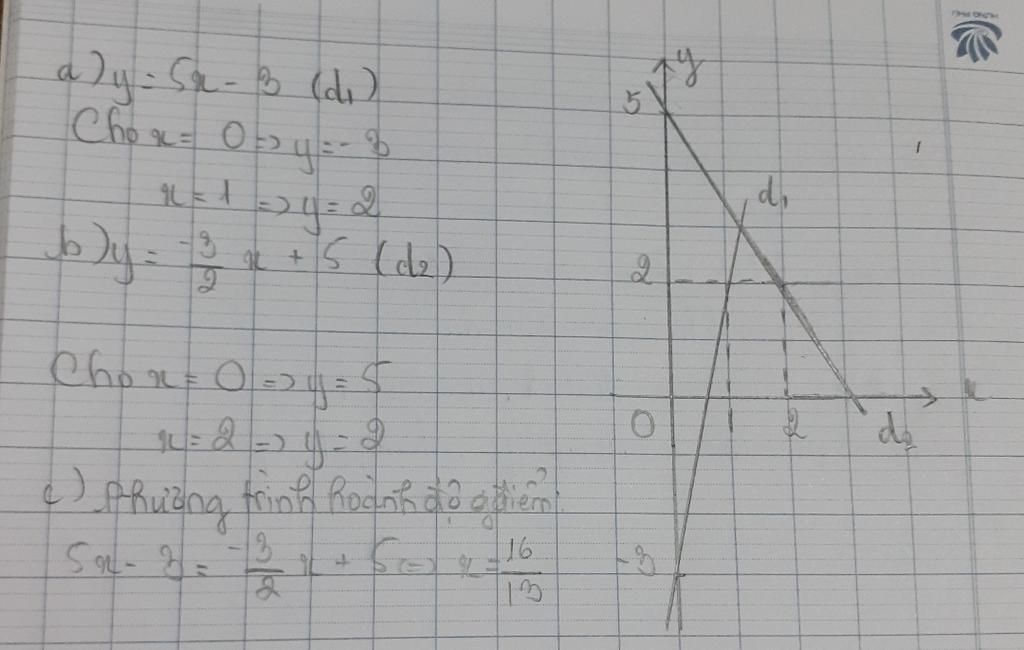 a) y = 5x - 3 (d₁)
Cho x = 0 => y = -3
x = 1 => y = 2
b) y = -3/2 x + 5 (d₂)
Cho x = 0 => y = 5
x = 2 => y = 2
c) Phương trình hoành độ gđiểm
5x - 3 = -3/2 x + 5 => x = 16/13
y
5
d₁
2
x
0
2
d₂
-3